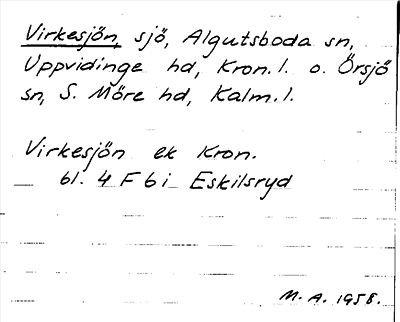 Virkesjön, sjö, Algutsboda sn,
Uppvidinge hd, Kron. l. o. Örsjö
sn, S. Möre hd, Kalm. l.
Virkesjön ek Kron.
bl. 4 F 6 i Eskilsryd
M. A. 1958.